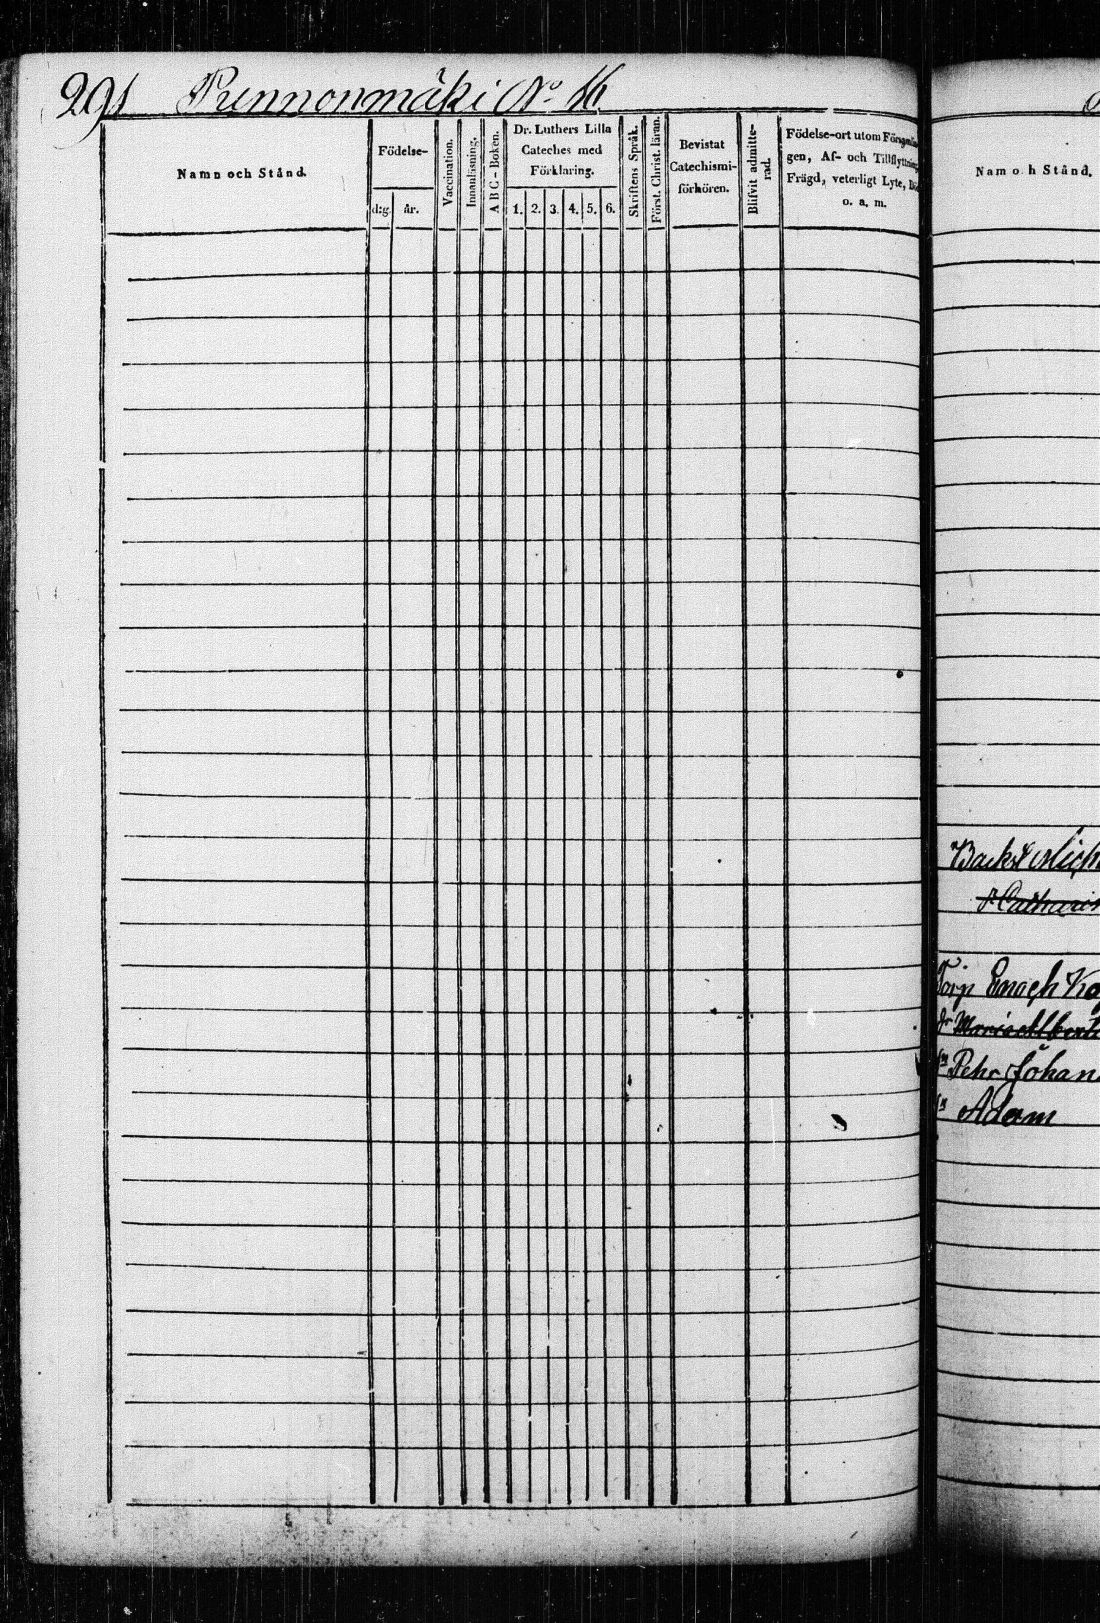 291 Punnonmäki No 16
Namn och Stånd.
Födelse-
d:g. år.
Vaccination.
Innanläsning.
A B C - Boken.
Dr. Luthers Lilla
Cateches med
Förklaring.
1. 2. 3. 4. 5. 6.
Skriftens Språk.
Först. Christ. läran.
Bevistat
Catechismi-
förhören.
Blifvit admitte-
rad.
Födelse-ort utom Församlin
gen, Af- och Tillflyttning
Frägd, veterligt Lyte, Dö
o. a. m.
Nam o h Stånd.
Backst Mich
Catharin
Torp Enoch
Maria Albert
Pehr Johan
Adam